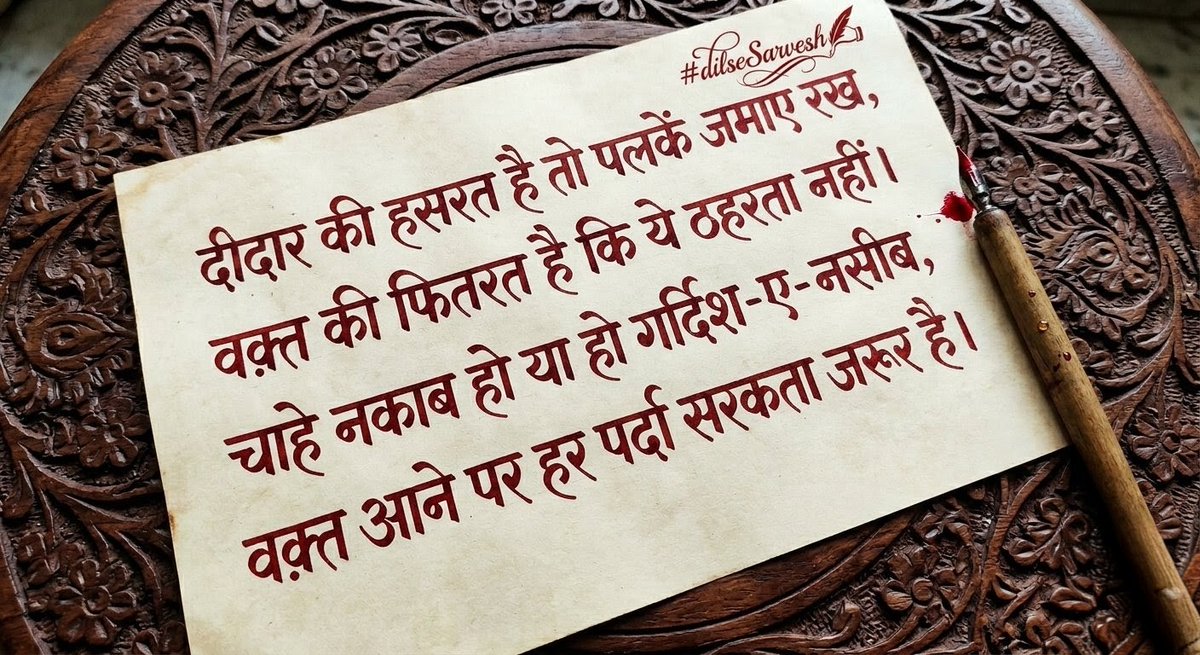 #dilseSarvesh
दीदार की हसरत है तो पलकें जमाए रख,
वक़्त की फितरत है कि ये ठहरता नहीं।
चाहे नकाब हो या हो गर्दिश-ए-नसीब,
वक़्त आने पर हर पर्दा सरकता जरूर है।